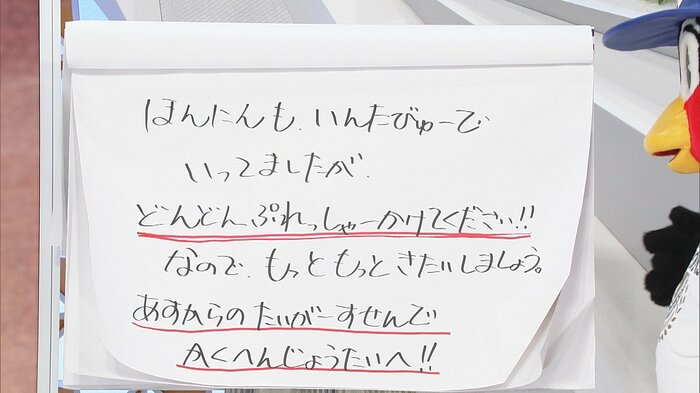 ほんにんも、いんたびゅーで
いってましたが、
どんどんぷれっしゃーかけてください!!
なので、もっともっときたいしましょう。
あすからのたいがーすせんで
かくへんじょうたいへ!!